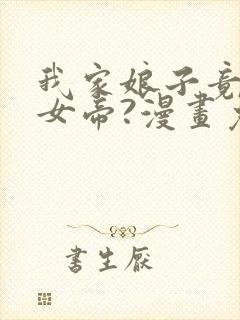 我家娘子竟
女帝?漫畫
書生厭